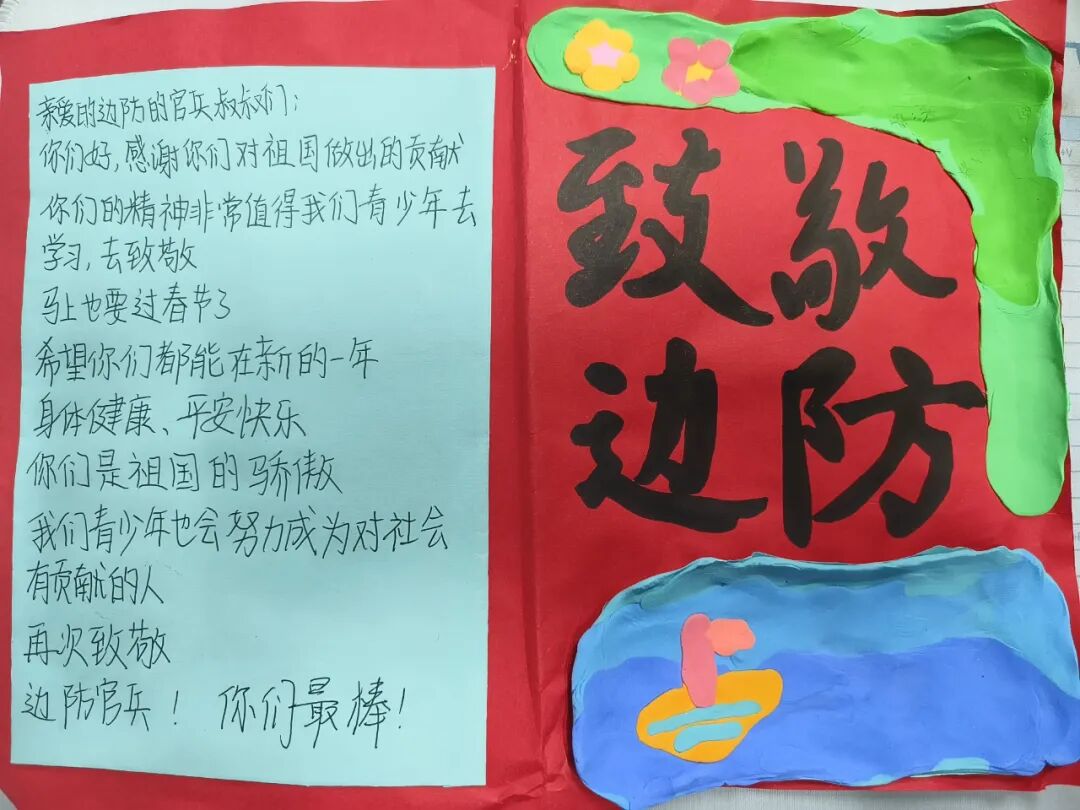 亲爱的边防的官兵叔叔们：
你们好,感谢你们对祖国做出的贡献
你们的精神非常值得我们青少年去
学习,去致敬
马上也要过春节了
希望你们都能在新的一年
身体健康、平安快乐
你们是祖国的骄傲
我们青少年也会努力成为对社会
有贡献的人
再次致敬
边防官兵！ 你们最棒！
致敬
边防